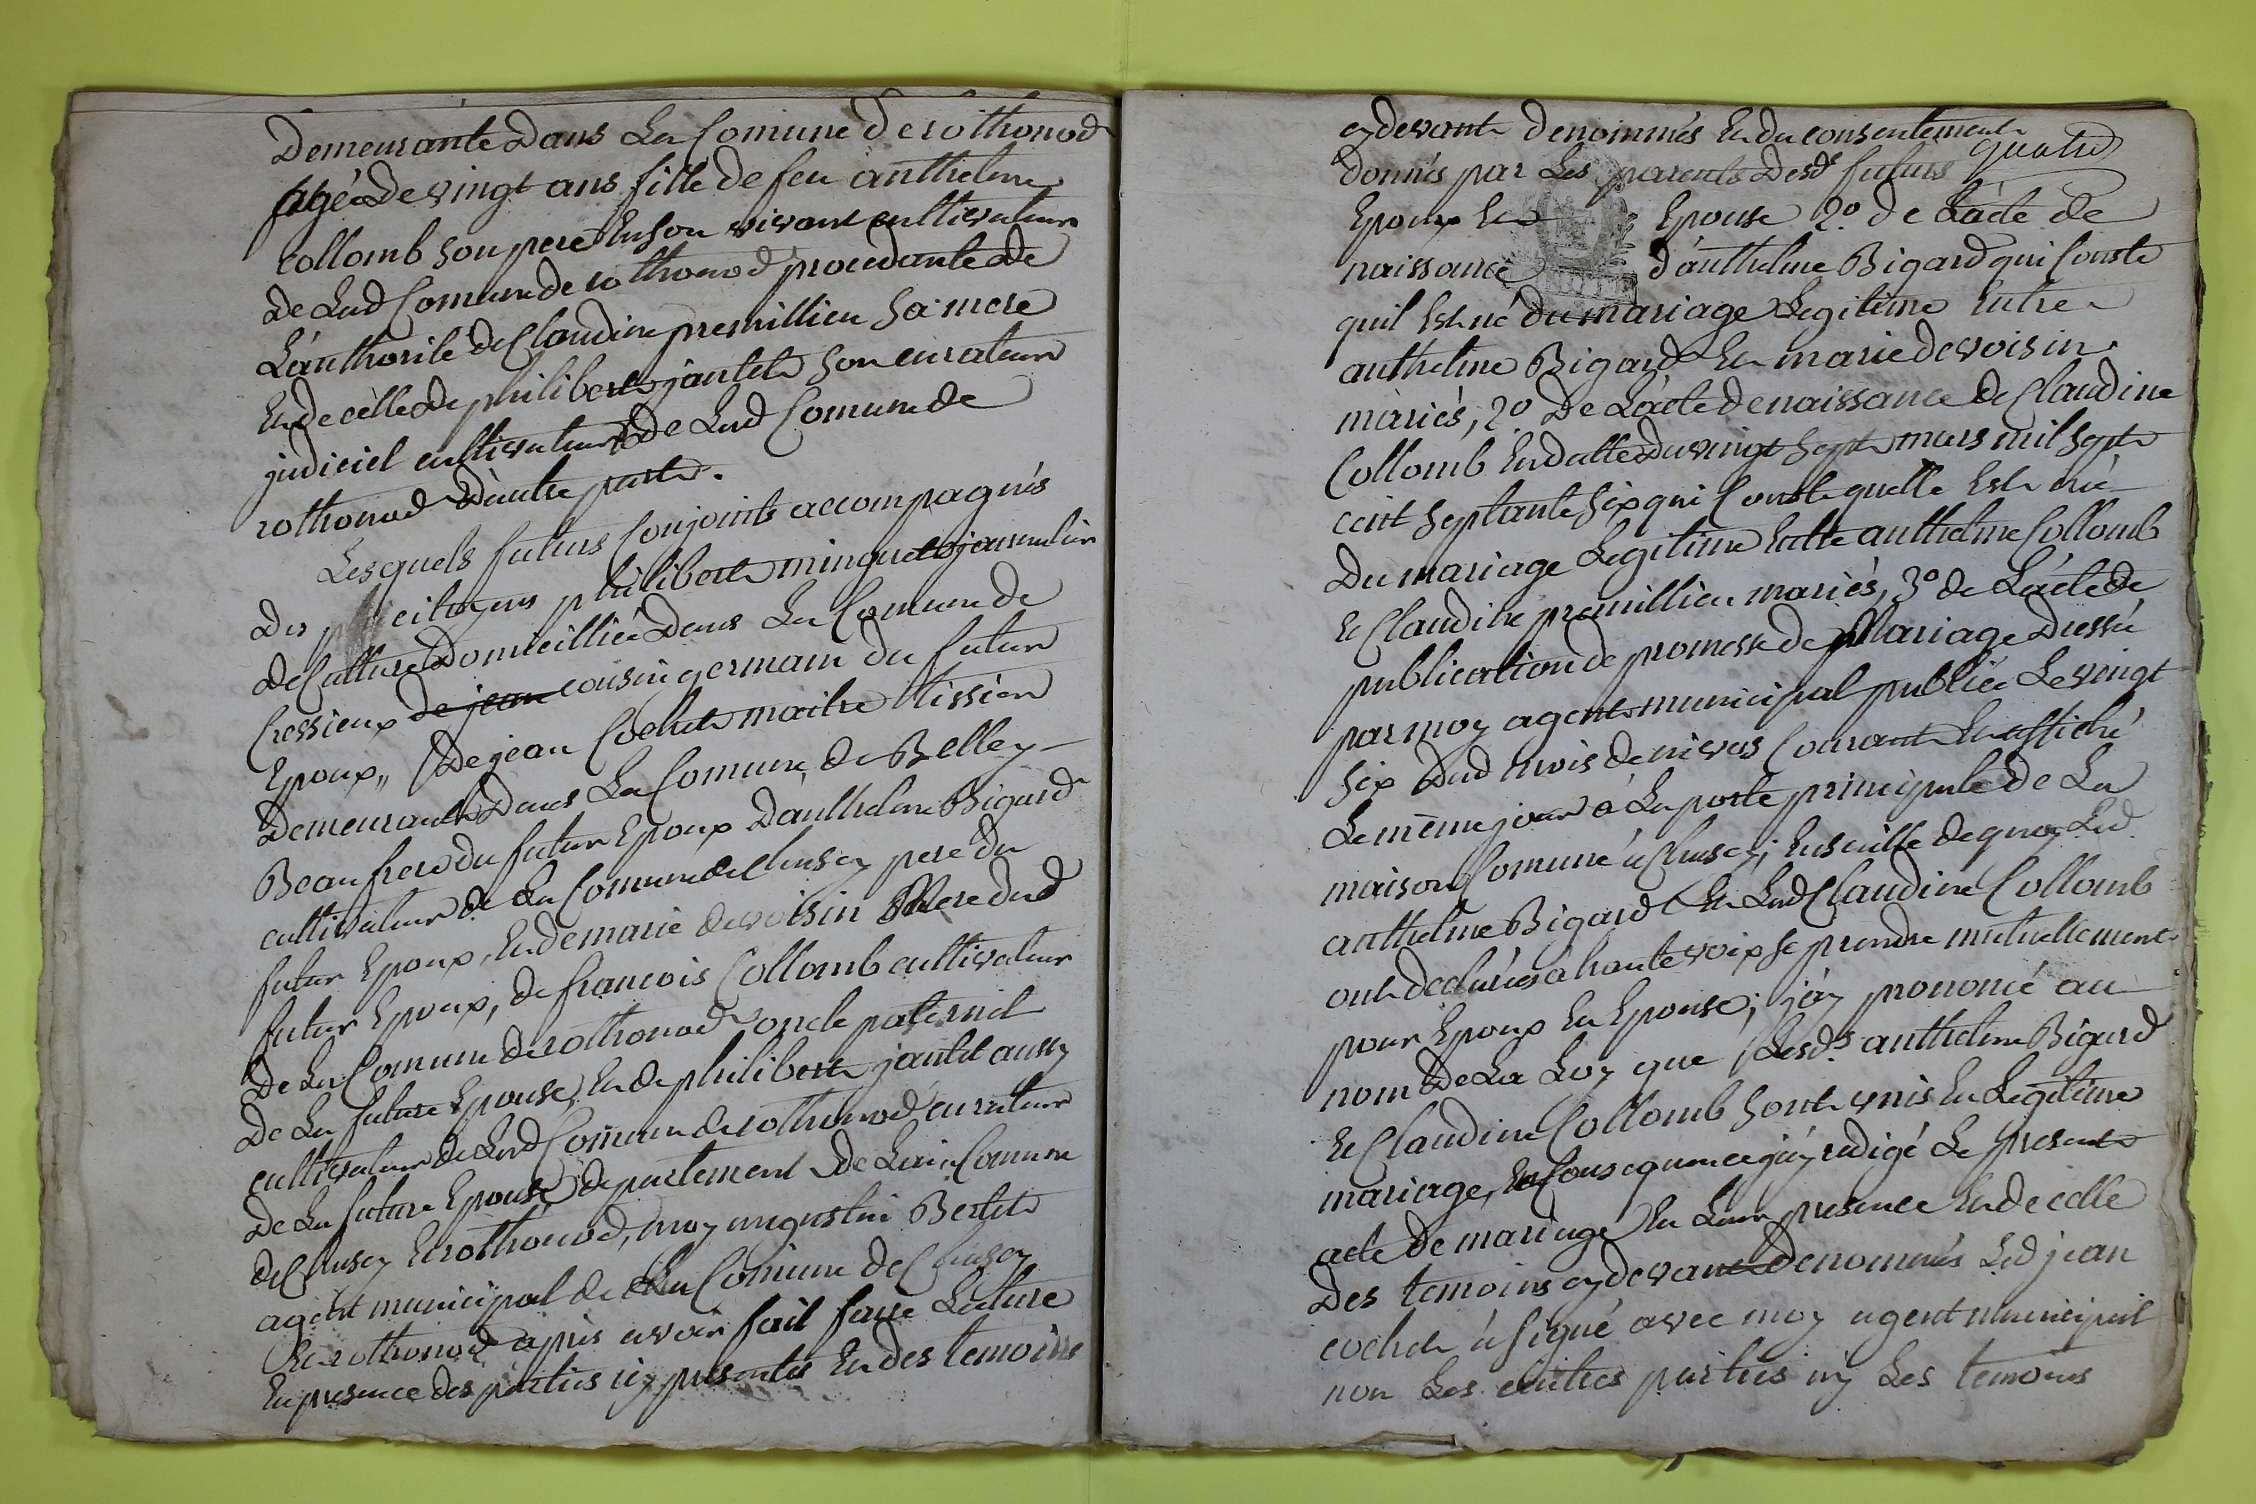 Demeurante Dans La Comune de rothonod
agée de vingt ans fille de feu anthelme
collomb son pere En son vivant cultivateur
de Lad Comune de rothonod procedante de
L'authorité de Claudine premillieu sa mere
Et de celle de philibert jantet son curateur
judiciel cultivateur de Lad Comune de
rothonod D'autre part.
Lesquels futurs Conjoints accompagnés
Des citoyens philibert minguet journalier
de Culture Domicillié Dans La Comune de
Cressieux de jean cousin germain du futur
Epoux,, De jean Cochet maitre tissier
Demeurant Dans La Comune de Belley
Beaufrere du futur Epoux D'anthelme Bigard
cultivateur de La Comune de Chusey pere du
futur Epoux, Et de marie devoisin Mere dud
futur Epoux, de francois Collomb cultivateur
De La Comune de rothonod oncle paternel
De La future Epouse, Et de philibert jantet aussy
cultivateur de Lad Comune de rothonod curateur
De La future Epouse departement de Lain Comune
de Chusey Et rothonod, moy augustin Bertet
agent municipal de La Comune de Chusey
Et rothonod apris avoir fait faire Lecture
En presence des parties icy presentes Et des temoins
cy devant denommés Et du consentement
quatre
donnés par Les parents Desds futurs
Epoux Et Epouse 2o de L'acte de
naissance d'anthelme Bigard qui Conste
quil Est né du mariage Legitime Entre
anthelme Bigard Et marie devoisin
mariés, 2o De L'acte de naissance de Claudine
Collomb En datte du vingt sept mars mil sept
cent septante six qui Conste quelle Est née
Du mariage Legitime Entre anthelme Collomb
Et Claudine premillieu mariés, 3o de L'acte de
publication de promesse de Mariage Dressé
par moy agent municipal publiée Le vingt
six Dud mois de nivos Courant Et affiché
Le même jour à La porte principale de La
maison Comune à Chusey; Ensuitte de quoy Led
anthelme Bigard Et Lad Claudine Collomb
ont declarés à haute voix se prendre mutuellement
pour Epoux Et Epouse; j'ay prononcé au
nom de La Loy que Lesds anthelme Bigard
Et Claudine Collomb sont unis En Legitime
mariage, En Consequence j'ay redigé Le present
acte de mariage En Leur presence Et de celle
Des temoins cy devant denommés Led jean
cochet à signé avec moy agent municipal
non Les autres parties ny Les temoins